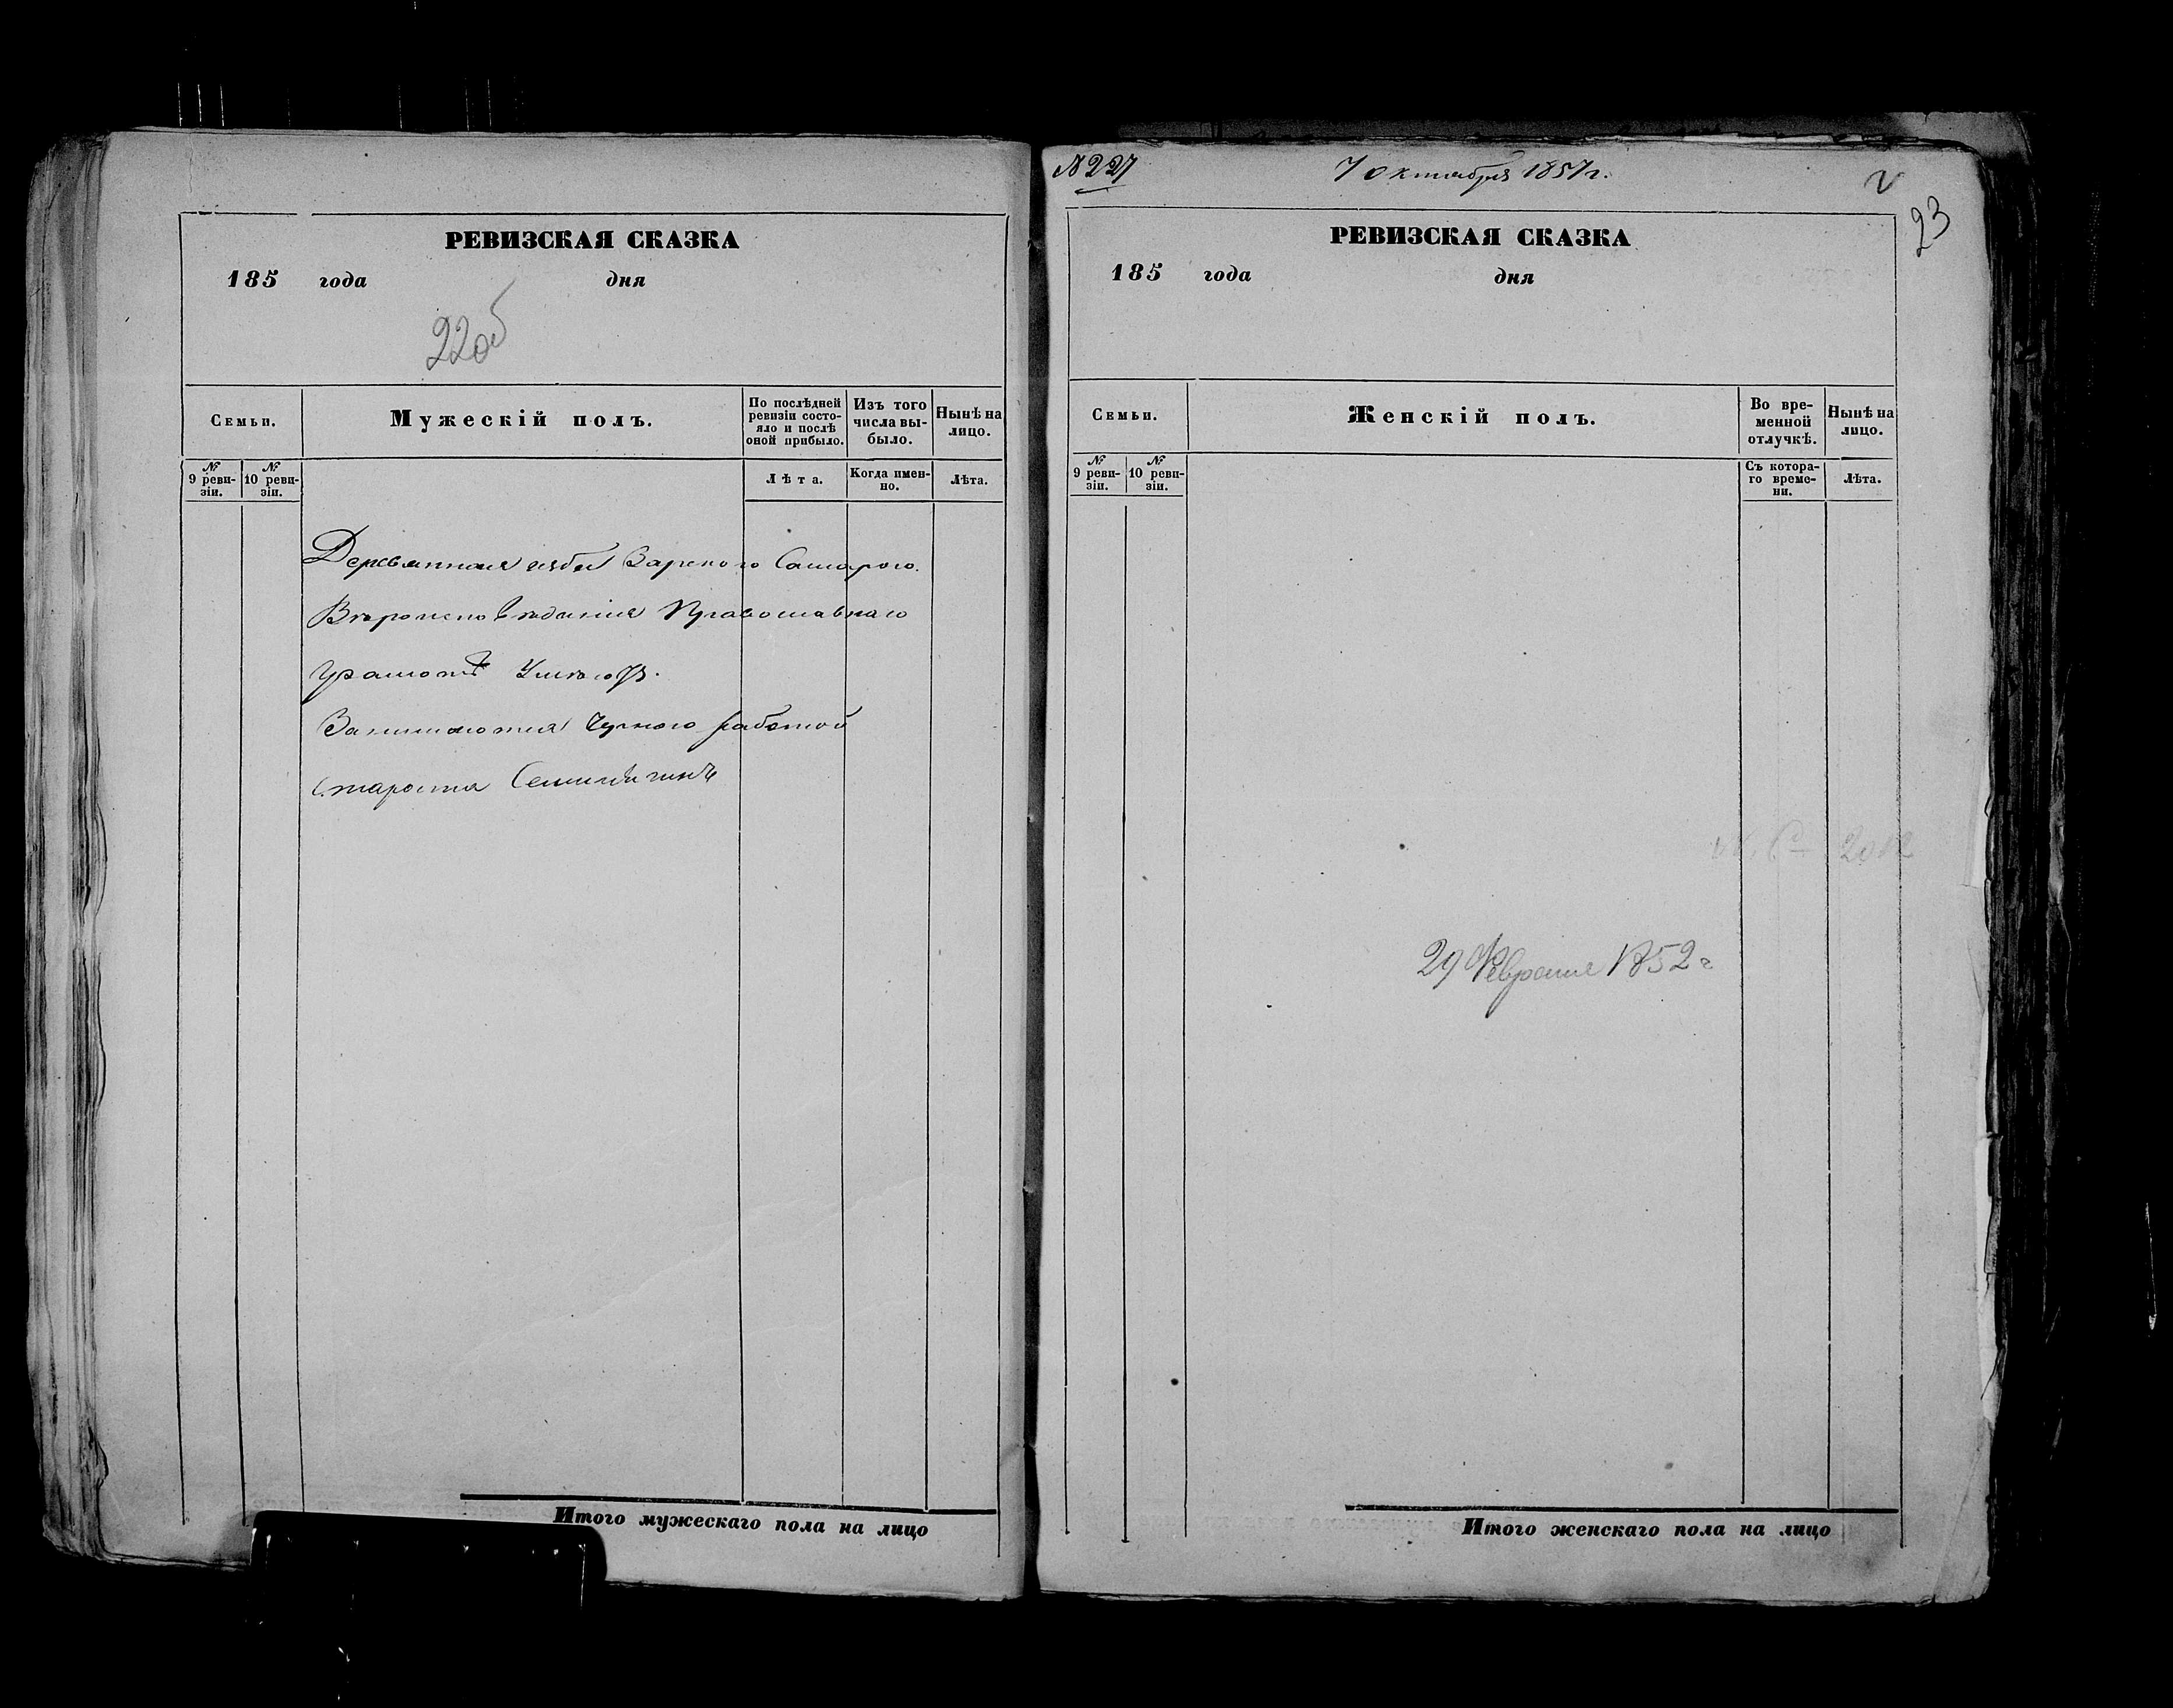 РЕВИЗСКАЯ СКАЗКА
185 года дня
22 об
Семьи.
Мужескій полъ.
По послѣдней ревизіи состояло и послѣ оной прибыло.
Изъ того числа выбыло.
Нынѣ на лицо.
№ 9 ревизіи.
№ 10 ревизіи.
Лѣта.
Когда именно.
Лѣта.
Деревянная изба
Вѣроисповѣданія Православнаго
грамотѣ
работой
Староста
Итого мужескаго пола на лицо
№ 227
7 октября 1857 г.
23
РЕВИЗСКАЯ СКАЗКА
185 года дня
Семьи.
Женскій полъ.
Во временной отлучкѣ.
Нынѣ на лицо.
№ 9 ревизіи.
№ 10 ревизіи.
Съ котораго времени.
Лѣта.
29 Февраля 1852 г
Итого женскаго пола на лицо